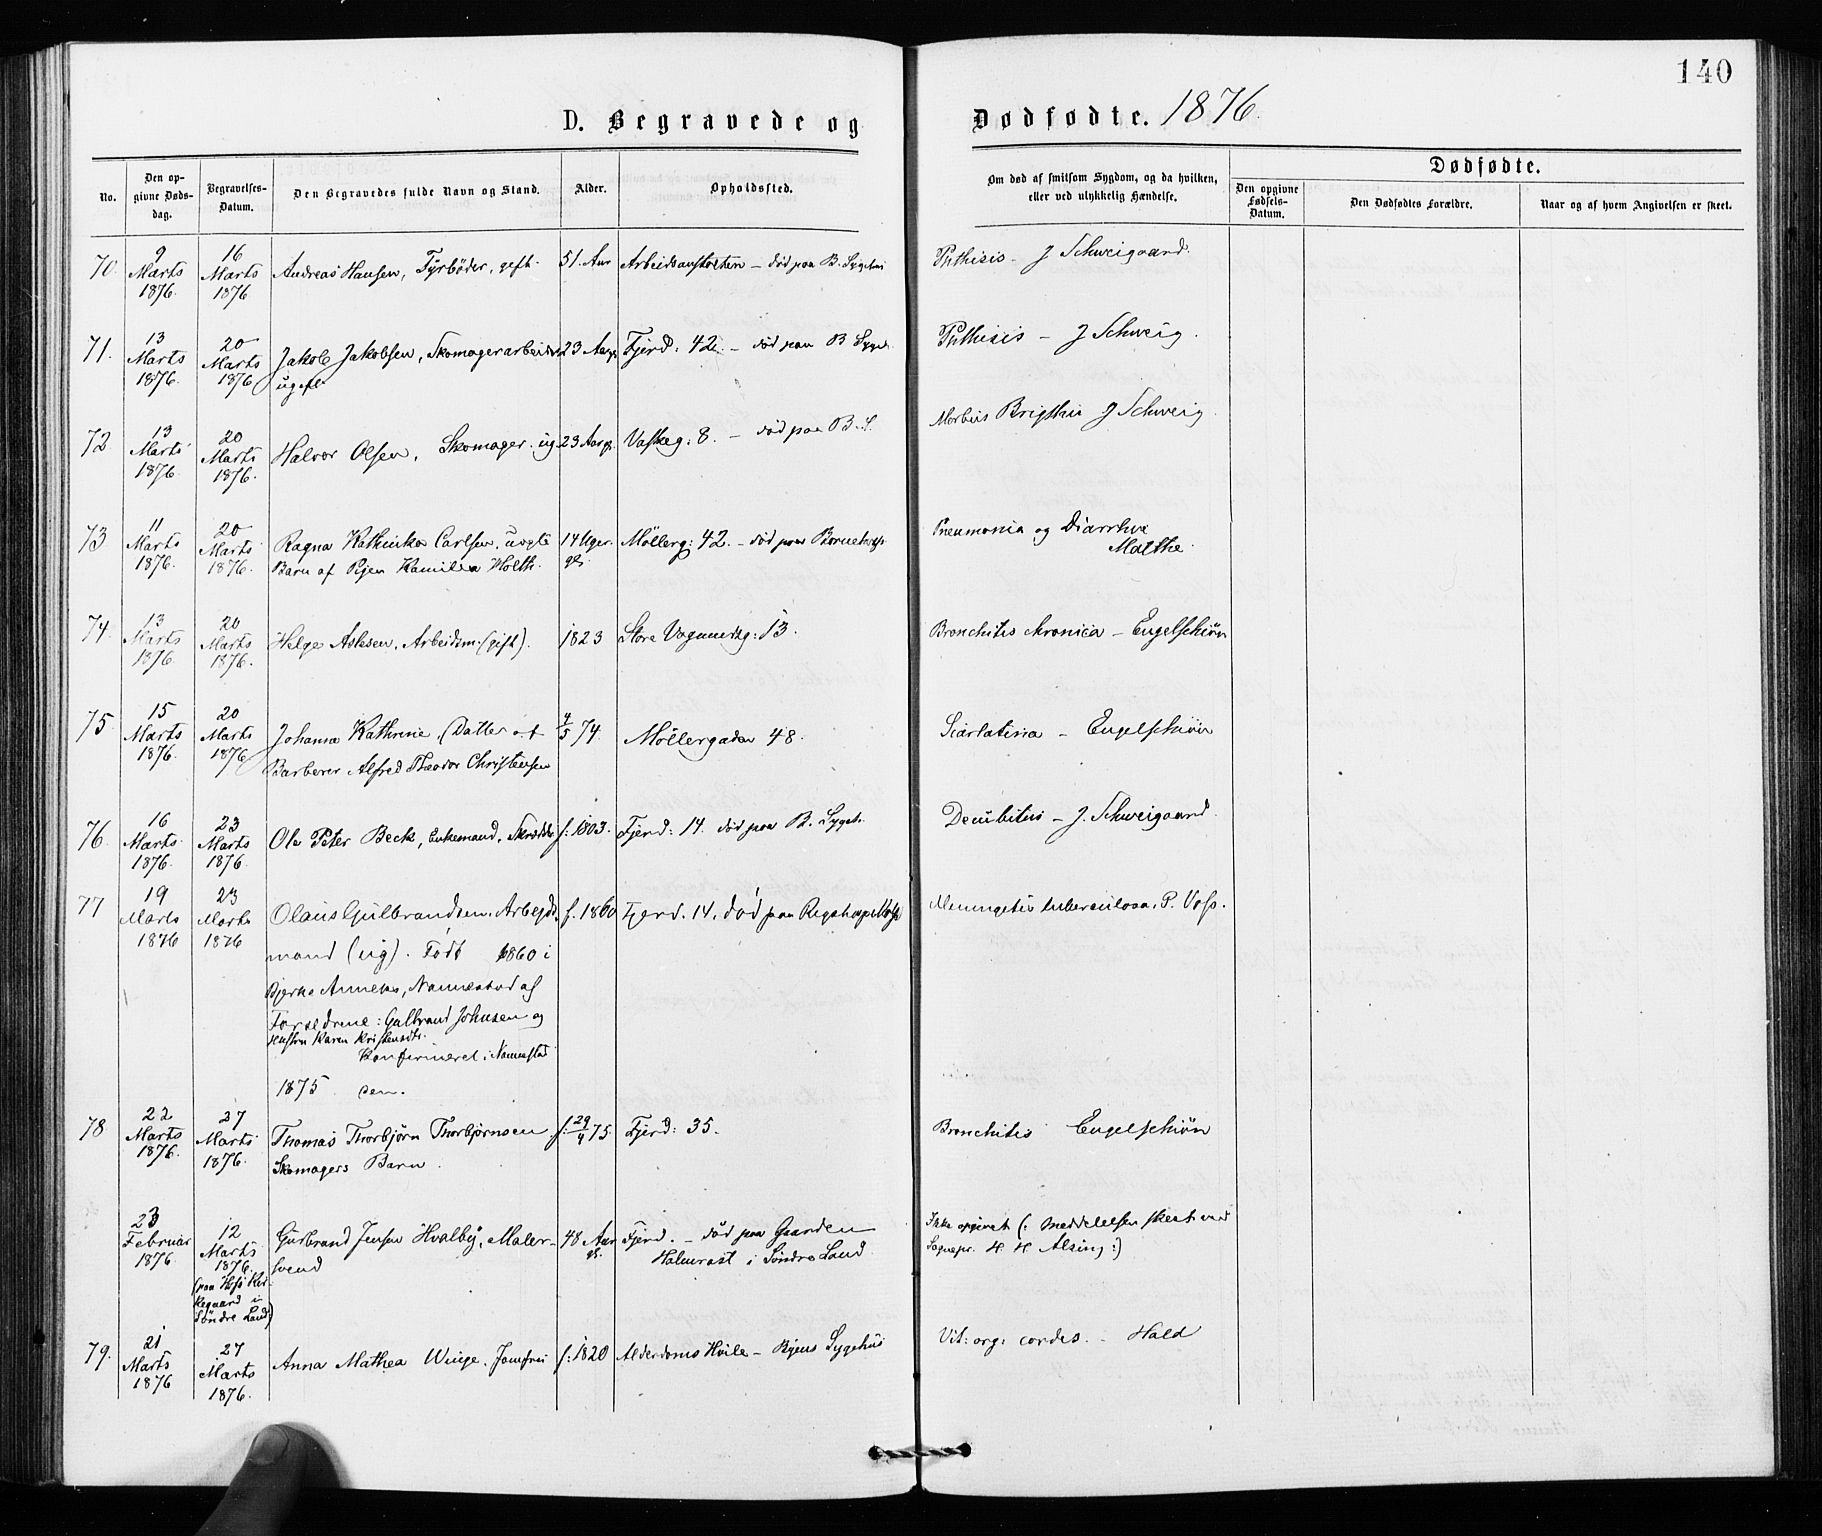 140
D. Begravede og Dødfødte. 1876.
No.
Den op-
givne Døds-
dag.
Begravelses-
Datum.
Den Begravedes fulde Navn og Stand.
Alder.
Opholdssted.
Om død af smitsom Sygdom, og da hvilken,
eller ved ulykkelig Hændelse.
Dødfødte.
Den opgivne
Fødsels-
Datum.
Den Dødfødtes Forældre.
Naar og af hvem Angivelsen er skeet.
70. 9 Marts 1876. 16 Marts 1876 Andreas Hansen, Fyrbøder, gift. 51. Aar Arbeidsanstalten - død paa B. Sygehus Phthisis - J Schweigaard.
71. 13 Marts 1876. 20 Marts 1876 Jakob Jakobsen, Skomagerarbeider 23 Aar Fjerd: 42. - død paa B Sygeh. Phthisis - J Schweig.
ugift
72 13 Marts 1876. 20 Marts 1876. Halvor Olsen, Skomager. ug. 23 Aar gl. Vaskeg: 8. - død paa B. S. Morbus Brigthii J Schweig.
73 11 Marts 1876. 20 Marts 1876. Ragna Kathinka Carlsen, uægte 14 Uger. Møllerg: 42. - død paa Børnehosp. Pneumonia og Diarrhoe
Barn af Pigen Kamilla Holth. gl. Malthe.
74. 13 Marts 1876 20 Marts 1876. Helge Aslesen, Arbeidsm. (gift). 1823 Store Vognmandsg: 13. Bronchitis chronica - Engelschiøn
75 15 Marts 1876. 20 Marts 1876 Johanna Kathrine, (Datter af 4/5 74. Møllergaden 48. Scarlatina - Engelschiøn
Barberer Alfred Theodor Christensen
76. 16 Marts 1876. 23 Marts 1876. Ole Peter Beck, Enkemand, Skrædder f: 1803. Fjerd: 14. død paa B. Sygeh. Decubitus - J. Schweigaard.
77 19 Marts 1876 23 Marts 1876 Olaus Gulbrandsen, Arbejds- f. 1860 Fjerd. 14, død paa Rigshosp. Meningetis tuberculosa, P. Voss.
mand (ug). Født 1860 i
Bjerke Anneks, Nannestad af
Forældrene: Gulbrand Johnsen og
Hustru Karen Kristensdtr.
Konfirmeret i Nannestad
1875
78 22 Marts 1876. 27 Marts 1876. Thomas Thorbjørn Thorbjørnsen f: 29/4 75. Fjerd: 35. Bronchitis Engelschiøn
Skomagers Barn.
23 Februar 1876 12 Marts 1876. Gulbrand Jensen Hvalby, Maler- 48 Aar gl. Fjerd. - død paa Gaarden Ikke opgivet (: Meddelelsen skeet ved
svend Halmrast i Søndre Land. Sognepr. H H Alsing:)
(paa Hofs Kir-
kegaard i
Søndre Land)
79. 21 Marts 1876 27 Marts 1876. Anna Mathea Winge. Jomfru f: 1820 Alderdoms Hvile - Byens Sygehus Vit: org: cordis. - Hald